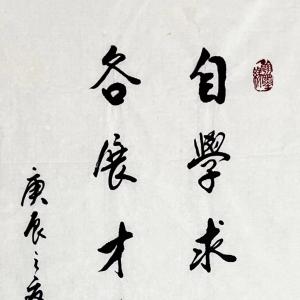 自學求
各展才
庚辰之